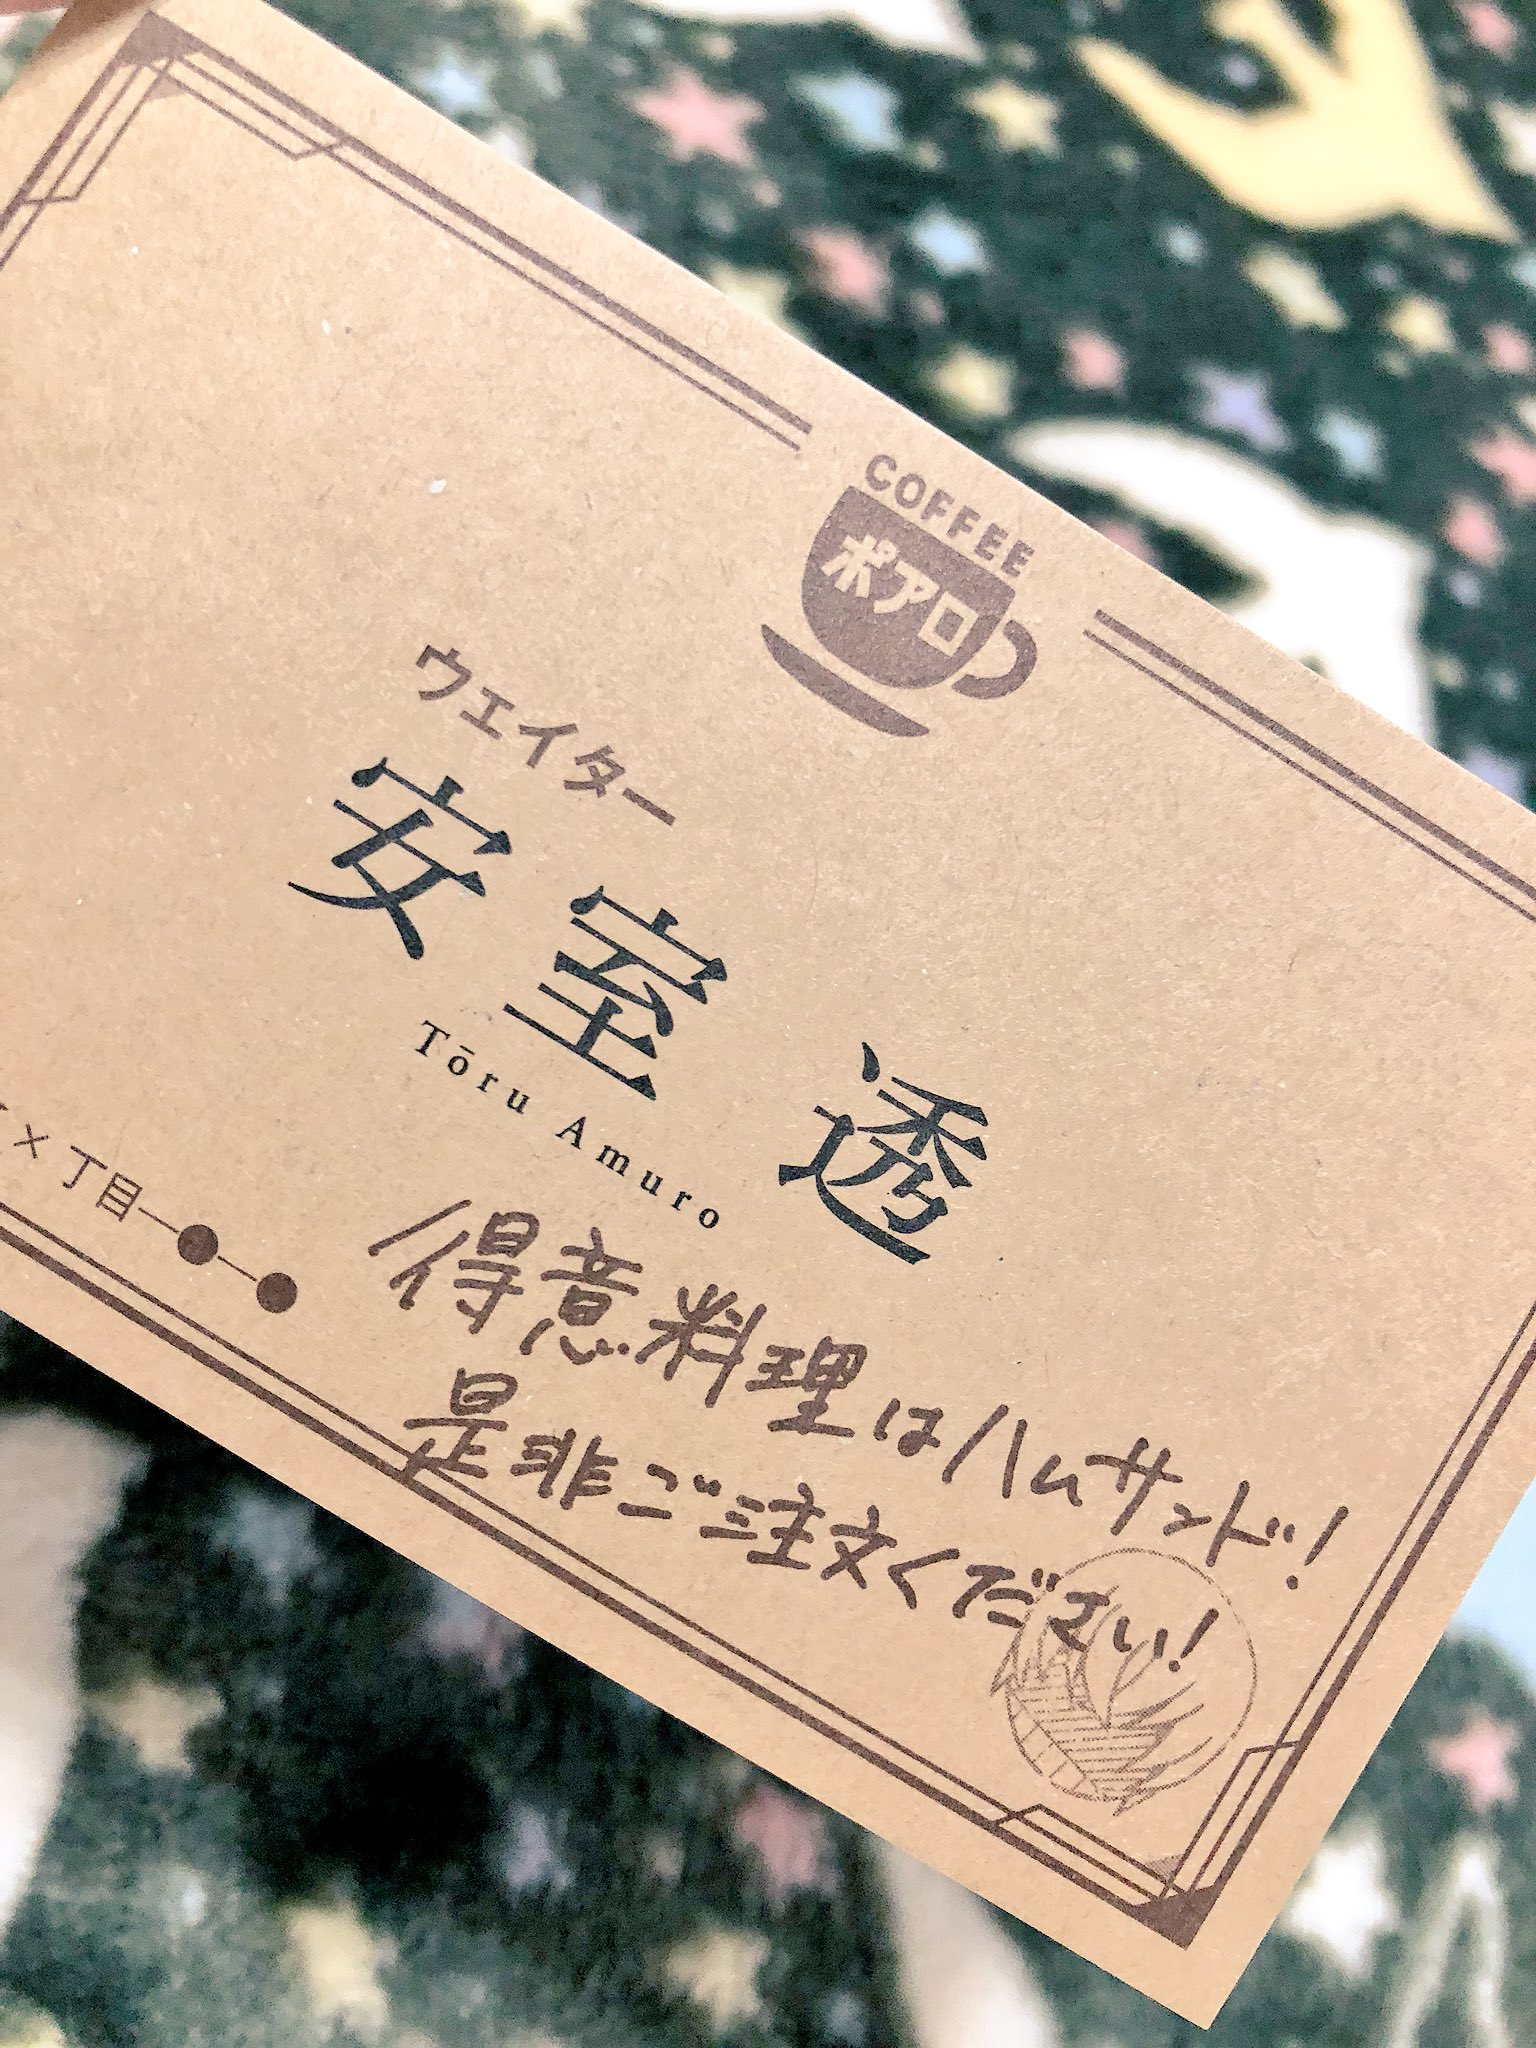 COFFEE
ポアロ
ウエイター
安室 透
Tōru Amuro
×丁目ー●ー●
得意料理はハムサンド!
是非ご注文ください!